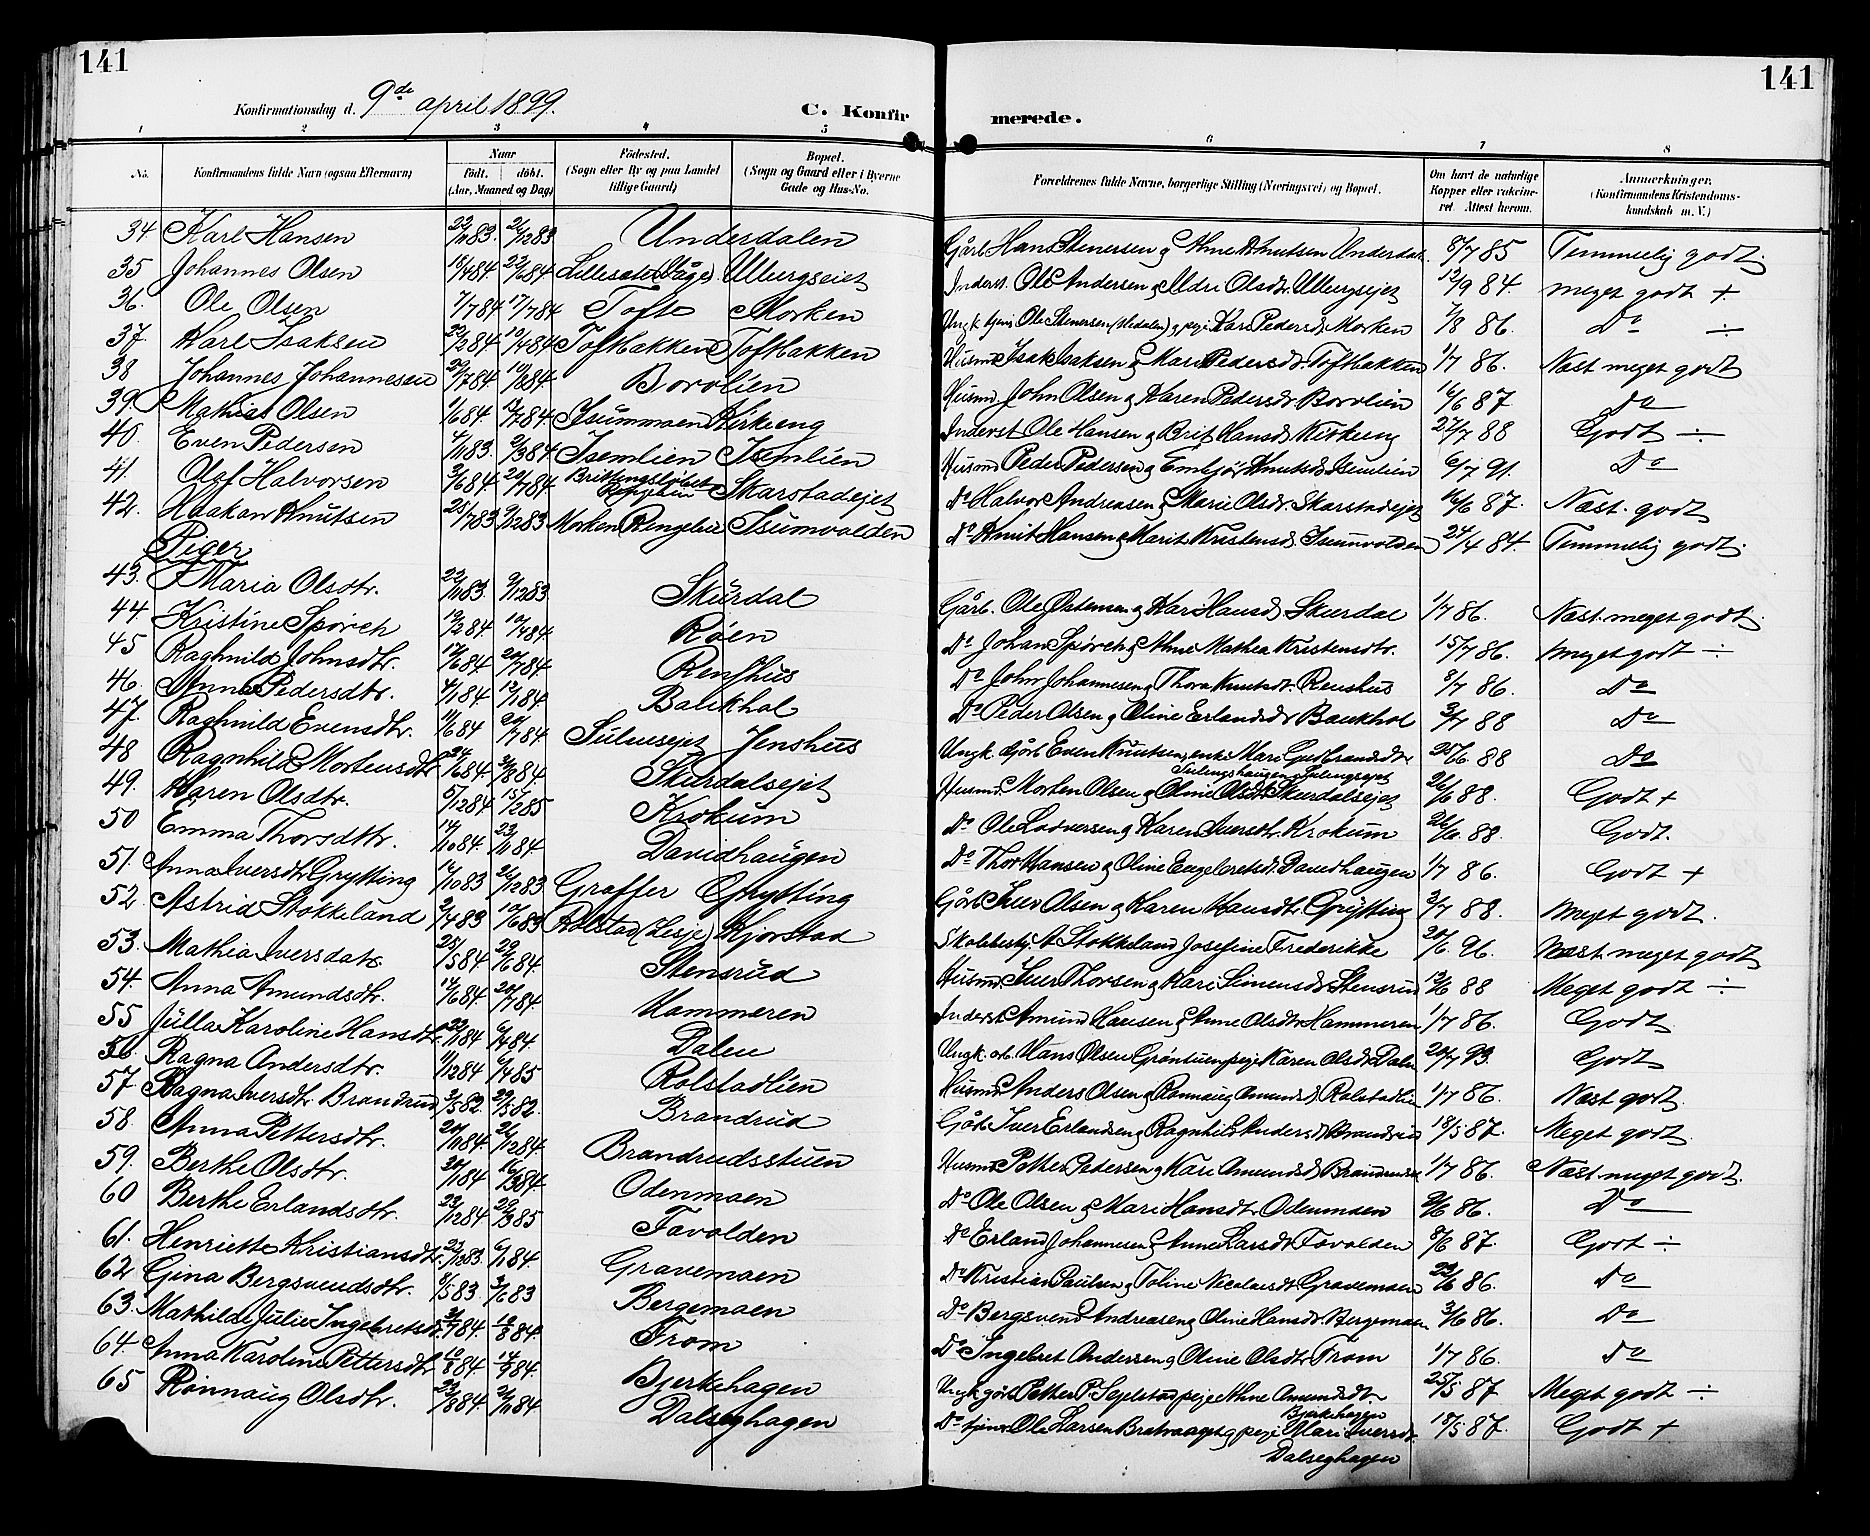 141
141
Konfirmationsdag d. 9de april 1899.
C. Konfirmerede.
1 2 3 4 5 6 7 8
No. Konfirmandens fulde Navn (ogsaa Efternavn) Naar födt. döbt. (Aar, Maaned og Dag) Födested. (Sogn eller By og paa Landet tillige Gaard) Bopæl. (Sogn og Gaard eller i Byerne Gade og Hus-No. Forældrenes fulde Navne, borgerlige Stilling (Næringsvei) og Bopæl. Om havt de naturlige Kopper eller vakcineret. Attest herom. Anmærkninger. (Konfirmandens Kristendomskundskab m. V.)
34. Karl Hansen 22/11 83. 26/12 83 Underdalen Gårb. Hans Stenersen & Anne Knutsen Underdal. 8/7 85 Temmelig godt.
35 Johannes Olsen 18/4 84 22/6 84 Lillesæter Vågå. Ulbergseiet Inderst. Ole Andersen & Mari Olsdtr. Ulbergsejet 12/9 84. meget godt +
36. Ole Olsen 7/7 84 17/7 84 Tofte Morken Ungk. tjen. Ole Stenersen & pige Kari Pedersd. Morken 7/8 86. Do ÷
37. Karl Isaksen 22/2 84 10/4 84 Toftbakken Toftbakken Husmd. Isak Isaksen & Mari Pedersd. Toftbakken 1/7 86. Næst meget godt
38 Johannes Johannesen 22/7 84 10/8 84 Borvlien Husmd. John Olsen & Karen Pedersdtr Borvlien 16/6 87 Do
39. Mathias Olsen 1/6 84. 13/7 84. Isummoen Kirkeng Inderst Ole Hansen & Brit Hansd. Kirkeng 27/7 88 Godt ÷
40. Even Pedersen 4/11 83. 2/3 84 Isemlien Isemlien Husmd. Peder Pedersen & Embjør Knutsd. Isumlien 6/7 91. Do
41. Olaf Halvorsen 3/6 84 20/7 84 Ringebu Skarstadejet Do Halvor Andreasen & Marie Olsdtr. Skarstadejet 16/6 87. Næst. godt
42. Haakon Knutsen 25/7 83 9/12 83 Morken Ringebu Isumvolden Do Knut Hansen & Marit Kristensd. Isumvolden 24/4 84. Temmelig godt.
Piger
43. Maria Olsdtr. 22/11 83. 9/12 83 Skurdal Gårb. Ole Pedersen & Kari Hansd. Skurdal 1/7 86. Næst. meget godt.
44 Kristine Spørck 12/2 84 12/4 84. Røen Do Johan Spørck & Anne Mathea Kristensdtr. 15/7 86. Meget godt ÷
45 Raghnild Johnsdtr. 17/6 84 20/7 84. Renshus Do John Johannesen & Thora Knutsdtr. Renshus 8/7 86. Do
46. Anna Pedersdtr. 4/1 84 12/1 84 Baukhol Do Peder Olsen & Oline Erlandsdr Baukhol 3/7 88 Do
47. Raghnild Evensdtr. 11/6 84 20/7 84. Sulusejet Jenshus Ungk. Gårb. Even Knutsen, enke Mari Gulbrandsdtr. 25/6. 88 Do
48 Ragnhild Mortensdtr 24/6 84. 3/8 84. Skurdalsejet Husmd. Morten Olsen & Oline Olsdtr Skurdalsejet 26/6 88. Godt +
49. Karen Olsdtr. 5/12 84 15/2 85 Krokum Do Ole Lodversen & Karen Iversdtr. Krokum 26/6. 88. Godt.
50 Emma Thorsdtr. 14/10 84. 23/11 84 Davidhaugen Do Thor Hansen & Oline Engebretsd. Davidhaugen 1/7 86. Godt +
51. Anna Iversdtr Grytting 14/10 83 26/12 83. Graffer Grytting Gårb. Iver Olsen & Karen Hansdtr. Grytting 3/7 88. meget godt.
52 Astrid Stokkeland 2/4 83 10/6 83 Rolstad (Lesje) Kjorstad Skolebest. A Stokkeland Josefine Frederikke 20/6. 96. Næst meget godt
53. Mathia Iversdatr 25/5 84 29/6 84. Stensrud Husmd. Iver Thorsen & Kari Simensd. Stensrud 13/6 88 Meget godt ÷
54. Anna Amundsdtr. 14/6 84. 20/7 84. Hammeren Inderst Amund Hansen & Anne Olsdtr. Hammeren 1/7 86. Godt
55 Julla Karoline Hansdtr. 23/1 84 6/4 84. Dalen Ungk. arb. Hans Olsen Grøntuen pige Karen Olsd. Dalen 20/7 93. Godt
56. Ragna Andersdtr. 11/12 84 6/4 85 Rolstadlien Husmd. Anders Olsen & Rønnaug Amundsd. Rolstadlien 1/7 86. Næst godt.
57. Ragna Iversdtr. Brandrud 2/5 82. 29/5 82. Brandrud Gårb. Iver Erlandsen & Ragnhild Andersd. Brandrud 18/5 87. Meget godt.
58. Anna Pettersdtr. 20/10 84. 26/12 84. Brandrudsstuen Husmd. Petter Pedersen & Kari Amundsd. Brandrudst 1/7 86. Næst meget godt.
59. Berthe Olsdtr. 20/1 84 16/3 84. Odenmoen Do Ole Olsen & Mari Hansdtr. Odenmoen 9/6 86. Do
60 Berthe Erlandsdtr. 23/12 84 29/3 85 Tovolden Do Erland Johannesen & Anne Larsdtr. Tovolden 8/6 87. Godt ÷
61. Henriette Kristiansdtr. 23/12 83. 6/1 84. Gravemoen Do Kristian Paulsen & Toline Nicolaisdtr. Gravemoen 23/6 86. Do
62 Gina Bergsvendsdtr. 8/5 83 3/6 83 Bergemoen Do Bergsvend Andreasen & Oline Hansd. Bergemoen 3/6 86. Do
63. Mathilde Julie Ingebretsd. 3/7 84. 10/8 84. From Do Ingebret Andersen & Oline Olsdtr. From 1/7 86. Do
64. Anna Karoline Pettersdtr. 10/8 84. 14/9 84. Bjerkehagen Ungk. gårb. Petter P. pige Anne Amundsdtr. Bjerkehagen 25/5 87. Meget godt ÷
65 Rønnaug Olsdtr. 22/8 84 2/11 84 Dalseghagen Do tjener Ole Larsen & pige Mari Iversdtr. Dalseghagen 18/5 87. Godt +